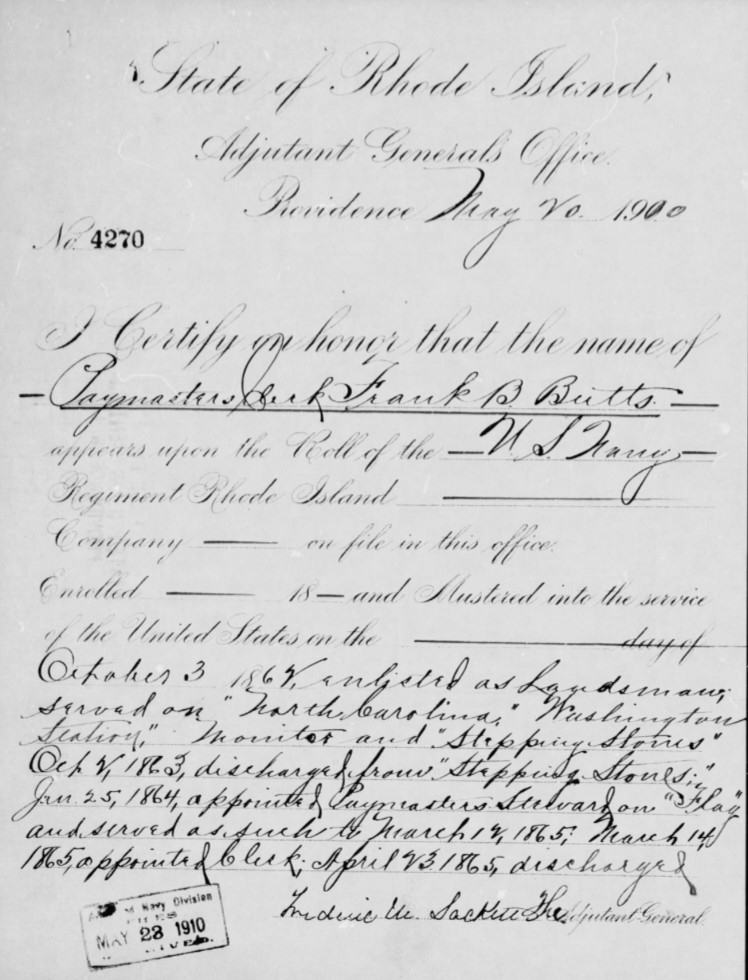 State of Rhode Island,
Adjutant General's Office.
Providence May 20. 1900
No. 4270
I Certify on honor that the name of
Paymasters Clerk Frank B. Butts.
appears upon the Roll of the U. S. Navy
Regiment Rhode Island
Company on file in this office.
Enrolled 18 and Mustered into the service
of the United States on the day of
October 3 1862, enlisted as Landsman;
served on "North Carolina," "Washington
Station," Monitor and "Stepping Stones"
Oct 2, 1863, discharged from "Stepping Stones;"
Jan. 25, 1864, appointed Paymasters Steward on "Flag"
and served as such to March 12, 1865; March 14,
1865, appointed Clerk; April 23 1865, discharged
Frederic M. Sackett The Adjutant General.
Navy Division
FILES
MAY 23 1910